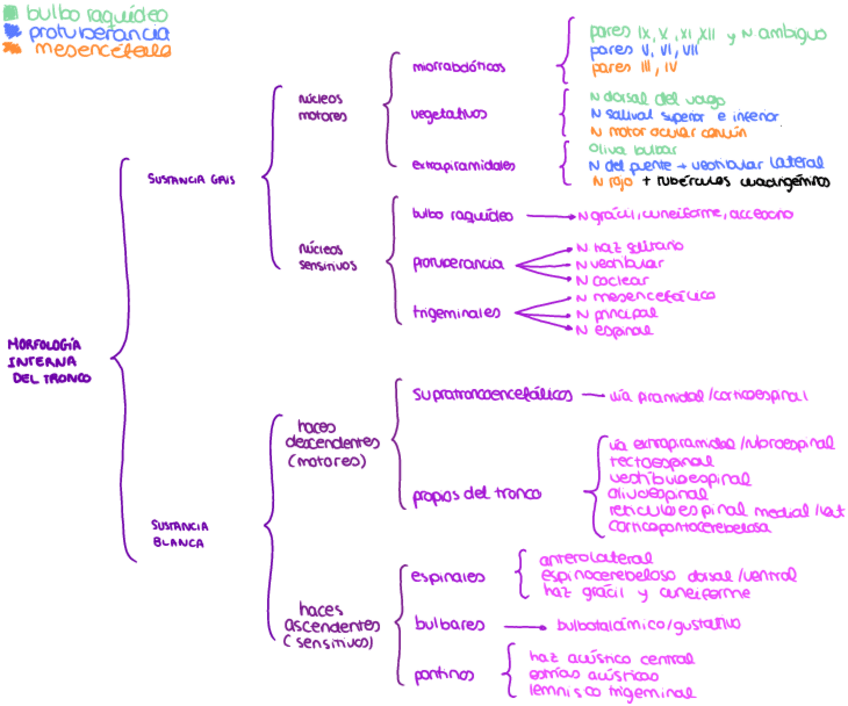 bulbo raquídeo
protuberancia
mesencéfalo
MORFOLOGÍA
INTERNA
DEL TRONCO
SUSTANCIA GRIS
núcleos
motores
miorrabdóticos
pares IX, X, XI, XII y N ambiguo
pares V, VI, VII
pares III, IV
vegetativos
N dorsal del vago
N salival superior e inferior
N motor ocular común
extrapiramidales
oliva bulbar
N del puente + vestibular lateral
N rojo + tubérculos cuadrigéminos
núcleos
sensitivos
bulbo raquídeo
N grácil, cuneiforme, accesorio
protuberancia
N haz solitario
N vestibular
N coclear
trigeminales
N mesencefálico
N principal
N espinal
SUSTANCIA
BLANCA
haces
descendentes
(motores)
supratroncoencefálicos
vía piramidal/corticoespinal
propios del tronco
vía extrapiramidal/rubroespinal
tectoespinal
vestibuloespinal
olivoespinal
reticuloespinal medial/lat
corticopontocerebelosa
haces
ascendentes
(sensitivos)
espinales
anterolateral
espinocerebeloso dorsal/ventral
haz grácil y cuneiforme
bulbares
bulbotalámico/gustativo
pontinos
haz acústico central
estrías acústicas
lemnisco trigeminal